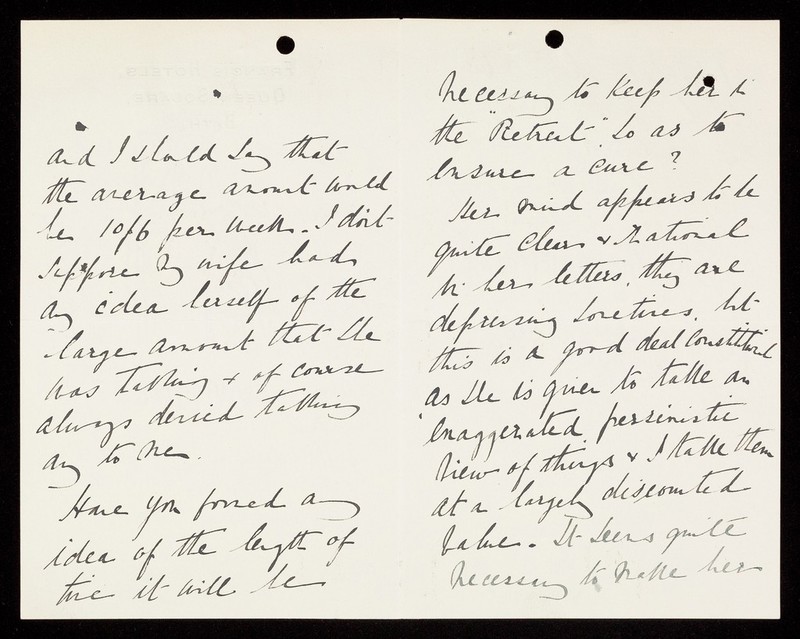 and I should say that
the average amount would
be 10/6 per week. I don't
suppose my wife had
any idea herself of the
large amount that she
was taking & of course
always denied taking
any to me.
Have you formed any
idea of the length of
time it will be
necessary to keep her in
the "Retreat" so as to
ensure a cure?
Her mind appears to be
quite clear & rational
in her letters, they are
depressing sometimes, but
this is a good deal constitutional
as she is given to take an
exaggerated pessimistic
view of things & I take them
at a largely discounted
value. It seems quite
necessary to make her